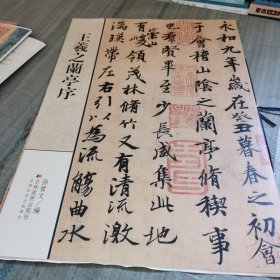 永和九年歲在癸丑暮春之初會
于會稽山陰之蘭亭脩稧事
也羣賢畢至少長咸集此地
有崇山峻領茂林脩竹又有清流激
湍暎帶左右引以為流觴曲水
王羲之蘭亭序
孫寶文 編
吉林美術出版社